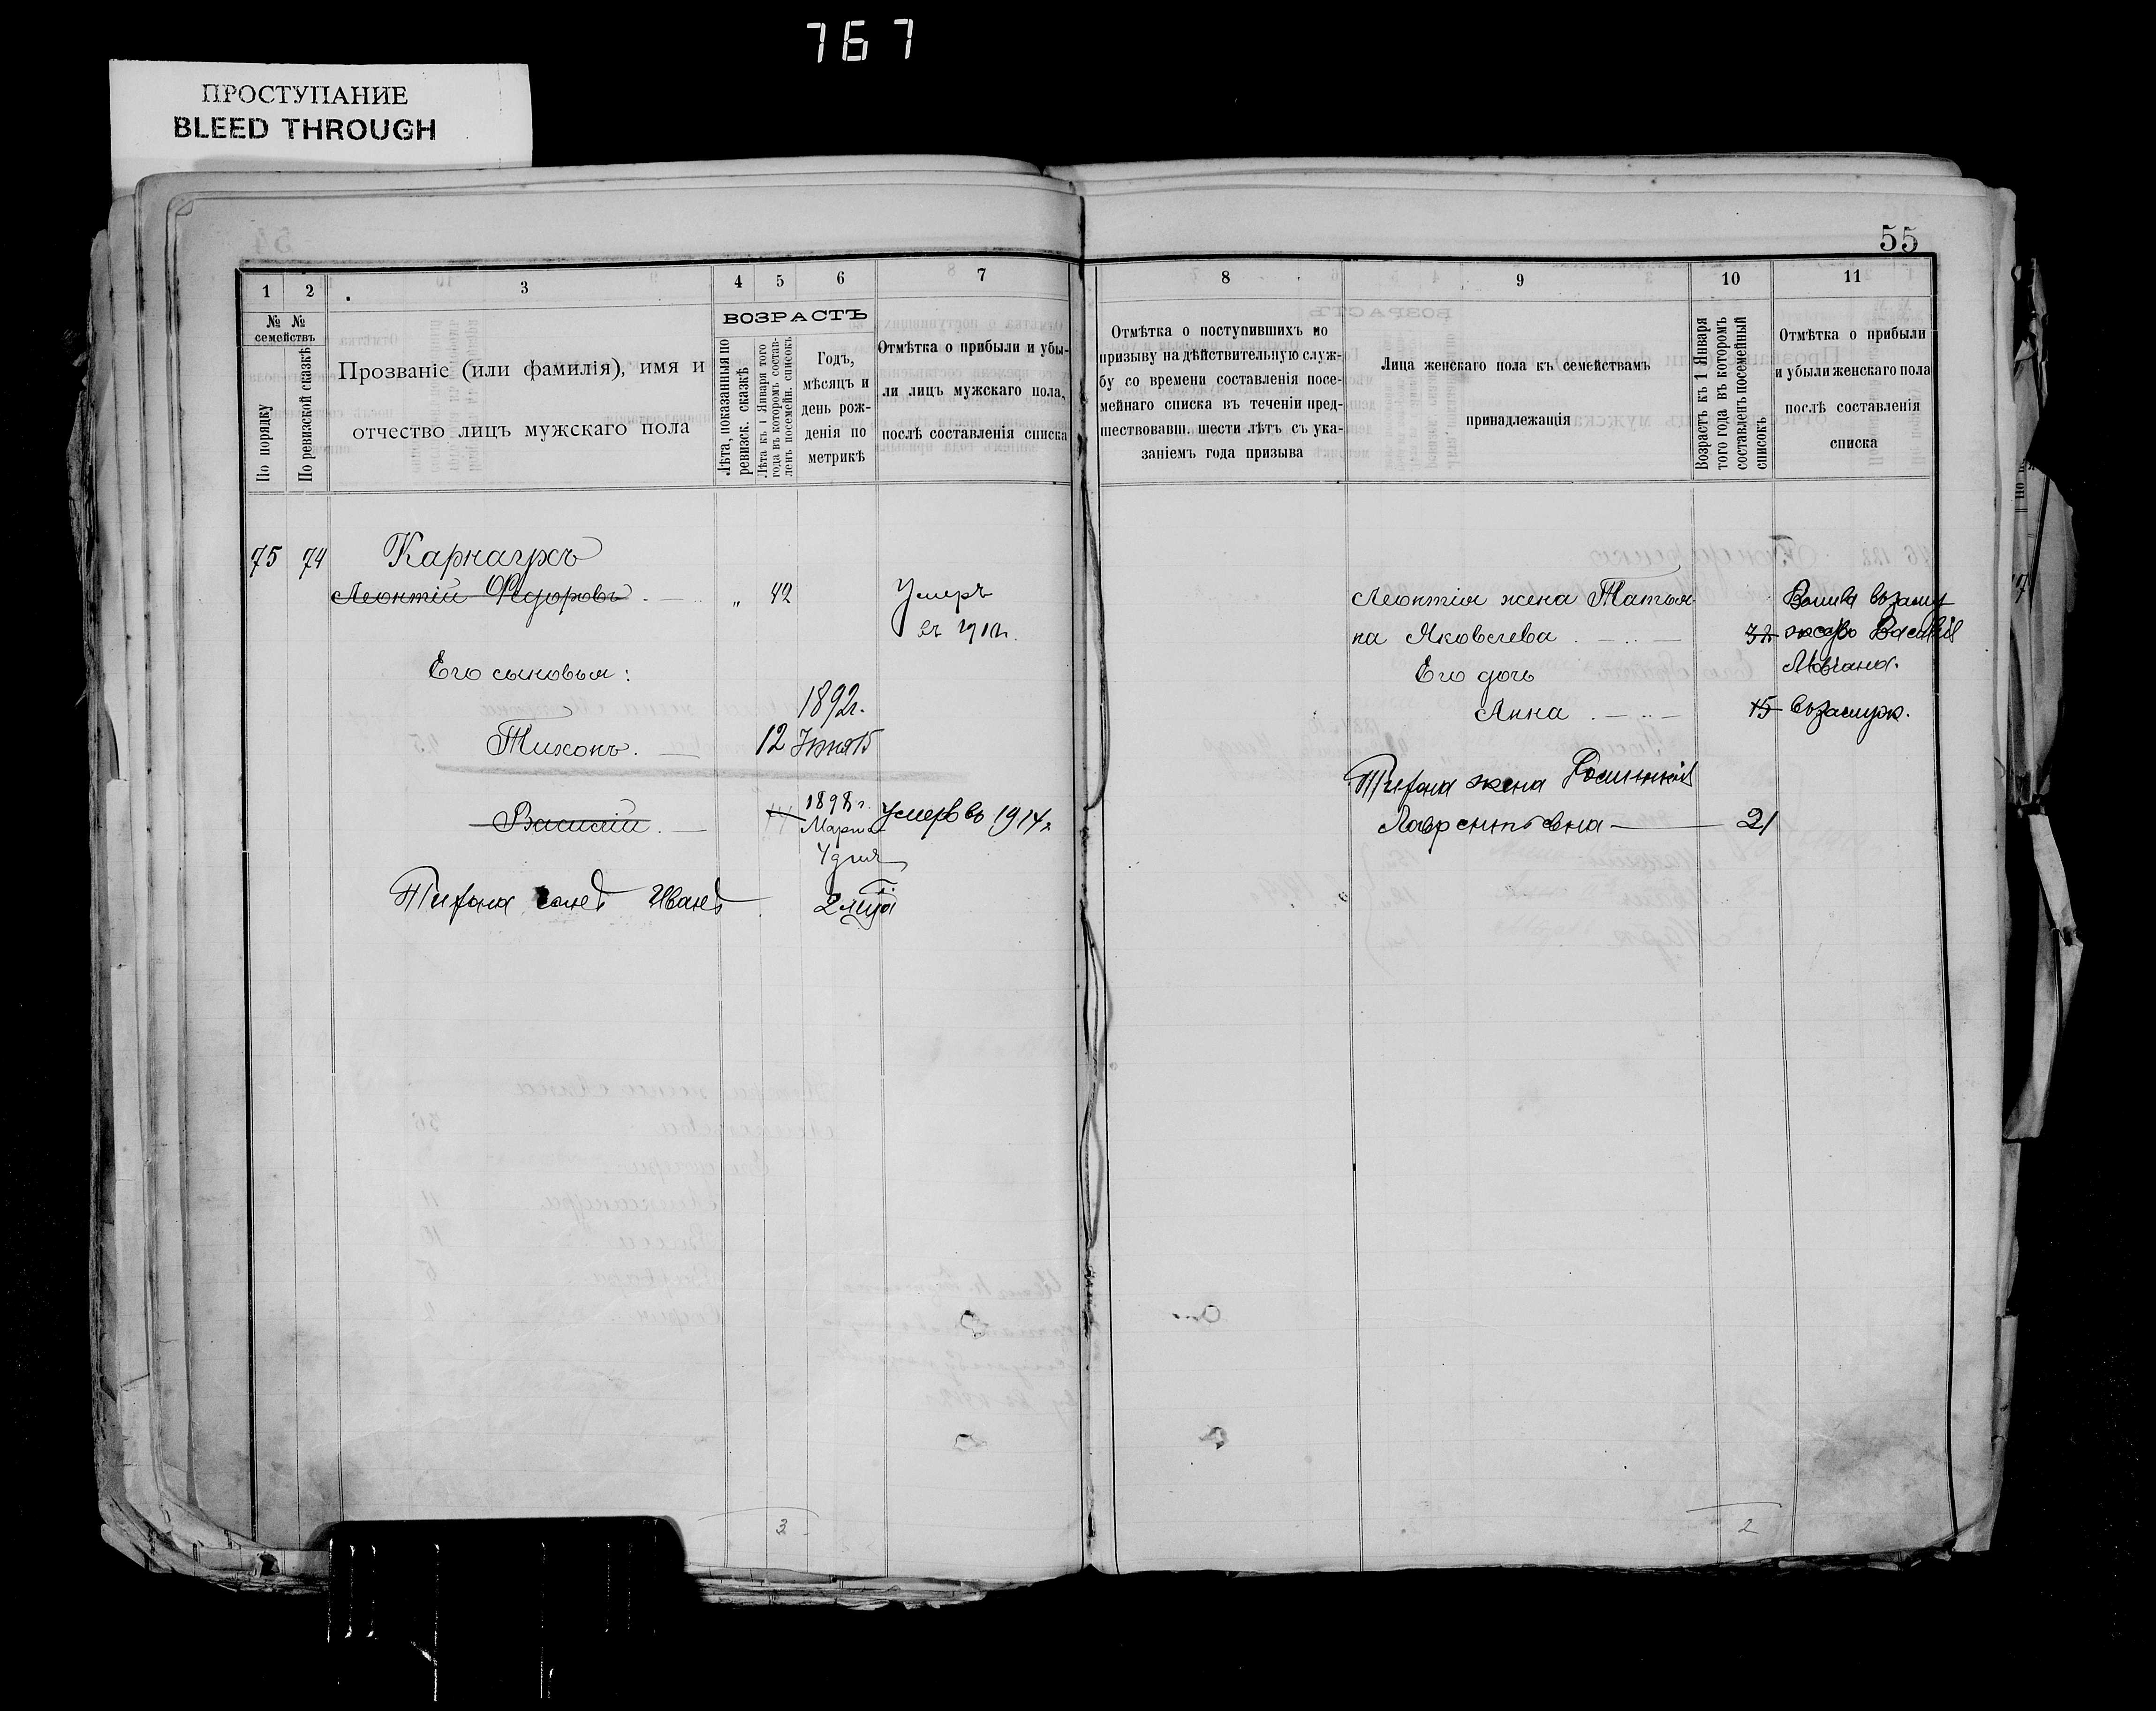 767
ПРОСТУПАНИЕ
BLEED THROUGH
55
1 2 3 4 5 6 7
№ № семействъ
По порядку
По ревизской сказкѣ
Прозваніе (или фамилія), имя и
отчество лицъ мужскаго пола
ВОЗРАСТЪ
Лѣта, показанныя по
ревизск. сказкѣ
Лѣта къ 1 Января того
года въ которомъ состав-
ленъ посемейн. списокъ
Годъ,
мѣсяцъ и
день рож-
денія по
метрикѣ
Отмѣтка о прибыли и убы-
ли лицъ мужскаго пола,
послѣ составленія списка
75 74 Карнаухъ
Леонтій Федоровъ „ 42 Умеръ
въ 191 г.
Его сыновья:
1892г.
Тихонъ. 12 Іюня 15
1898г.
Василій. Марта Умеръ въ 1914г.
4 дня
Тихона сынъ Иванъ 2
3
8 9 10 11
Отмѣтка о поступившихъ по
призыву на дѣйствительную служ-
бу со времени составленія посе-
мейнаго списка въ теченіи пред-
шествовавш. шести лѣтъ съ ука-
заніемъ года призыва
Лица женскаго пола къ семействамъ
принадлежащія
Возрастъ къ 1 Января
того года въ которомъ
составленъ посемейный
списокъ
Отмѣтка о прибыли
и убыли женскаго пола
послѣ составленія
списка
Леонтія жена Татья- Вышла въ замуж
на Яковлева 32 Василія
Его дочь
Анна 15 въ замуж.
Тихона жена
Лаврентьевна 21
2